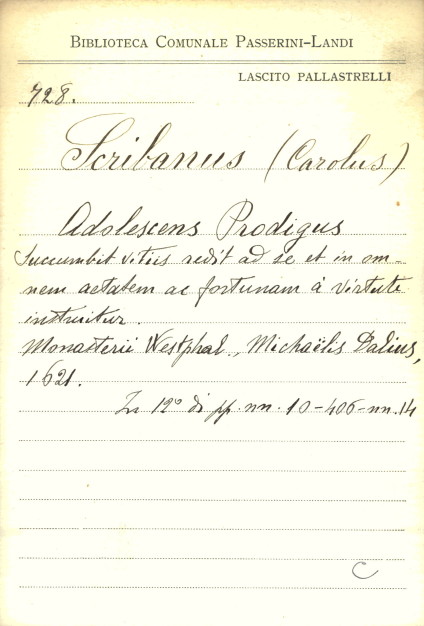 BIBLIOTECA COMUNALE PASSERINI-LANDI
LASCITO PALLASTRELLI
728.
Scribanus (Carolus)
Adolescens Prodigus
Succumbit vitiis redit ad se et in om-
nem aetatem ac fortunam à virtute
instruitur.
Monasterii Westphal., Michaëlis Dalius,
1621.
In 12° di pp. nn. 10-406-nn. 14
C